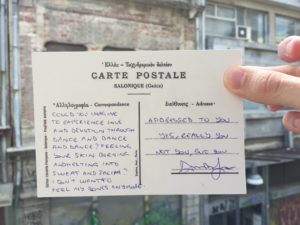 Ἑλλὰς - Ταχυδρομικὸν δελτάριον
CARTE POSTALE
SALONIQUE (Grèce)
Ἀλληλογραφία - Correspondance
Διεύθυνσις - Adresse
COULD YOU IMAGINE
TO EXPERIENCE LOVE
AND DEVOTION THROUGH
DANCE AND DANCE
AND DANCE? FEELING
YOUR SKIN BURNING
AND MELTING INTO
SWEAT AND
I DON'T WANT TO
FEEL MY BONES ANYMORE
ADDRESSED TO YOU
YES, REALLY YOU
NOT YOU, BUT YOU